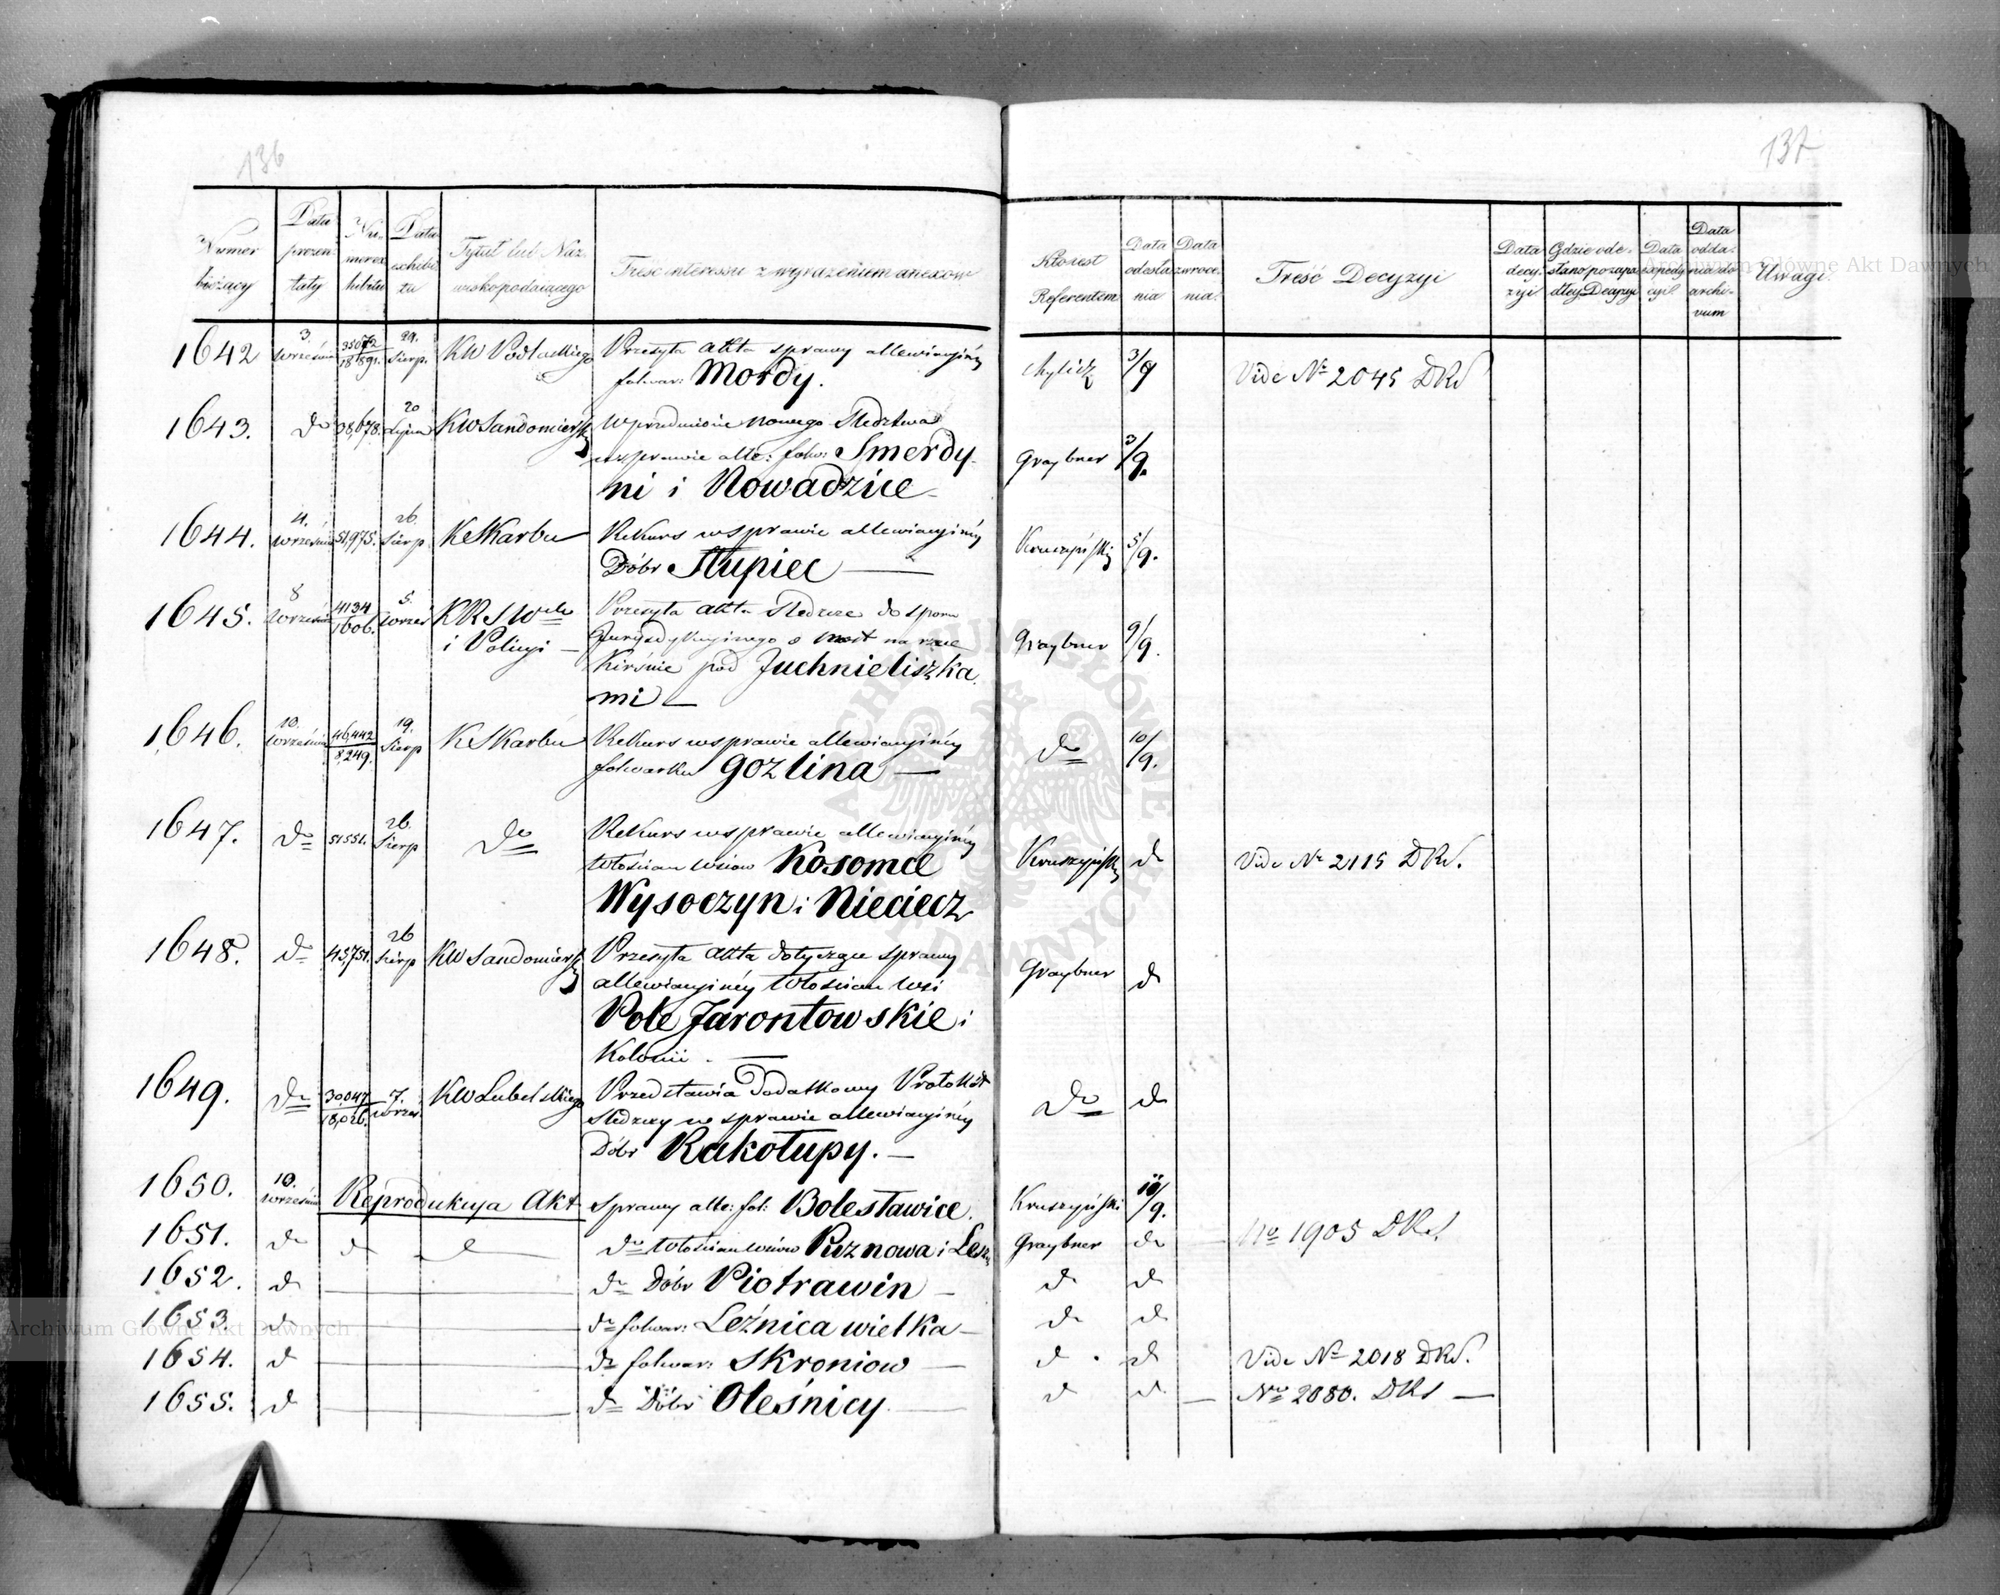 136
137
Numer bieżący
Data prezentaty
Numer exhibitu
Data exhibitu
Tytuł lub Nazwisko podaiącego
Treść interessu z wyrażeniem anexów
Kto iest Referentem
Data odesłania
Data zwrócenia
Treść Decyzyi
Data decyzyi
Gdzie odesłano po zapadłey Decyzyi
Data expedycyi
Data oddania do archivum
Uwagi
1642 3 Wrześn 29. Sierp. KW Podlaskiego Przesyła akta sprawy allewiacyjnéj
folwar: Mordy.
3/9 Vide Nr 2045 DRS
1643. do 38,678. 20 KW Sandomiersk W przedmiocie nowego śledztwa
w sprawie alle: folw: Smerdy-
ni i Nowadzice
Graybner 3/9.
1644. 4. Wrześn 51,975. 26. Sierp K Skarbu Rekurs w sprawie allewiacyjnéj
Dóbr Słupiec
5/9.
1645. 8 Wrześn 4134/1606. 5. Wrześ KRSW
i Policyi
Przesyła akta śledcze do sporu
Jurysdykcyjnego o most na rzece
Kirśnie pod Juchnieliszka
mi
Graybner 9/9.
1646. 10. Wrześn 46,442/8,249. 19. Sierp K Skarbu Rekurs w sprawie allewiacyjnéj
folwarku Gozlina
do 10/9.
1647. do 51551. 26. Sierp do Rekurs w sprawie allewiacyjnéj
Włościan wsiów Kosomce
Wysoczyn i Nieciecz
Kruszyński do Vide Nr 2115 DRS.
1648. do 45,751. 26 Sierp KW Sandomiersk Przesyła akta dotyczące sprawy
allewiacyjnéj Włościan wsi
Pole Jarontowskie i
Kolonii.
Graybner do
1649. do 30047/18,026. 7. Wrześ KW Lubelskiego Przedstawia dodatkowy Protokół
śledczy w sprawie allewiacyjnéj
Dóbr Rakołupy.
do do
1650. 10. Wrześn Reprodukcya Akt sprawy alle: fol: Bolesławice. Kruszyński 10/9.
1651. do do do Włościan wsiów Puznowa i Graybner do No 1905 DRS
1652. do do Dóbr Piotrawin do do
1653. do do folwar: Leźnica wielka do do
1654. do do folwar: Skroniow do do Vide Nr 2018 DRS.
1655. do do Dóbr Oleśnicy do do No 2080. DRS
ARCHIWUM GŁÓWNE AKT DAWNYCH
Archiwum Główne Akt Dawnych
Archiwum Główne Akt Dawnych